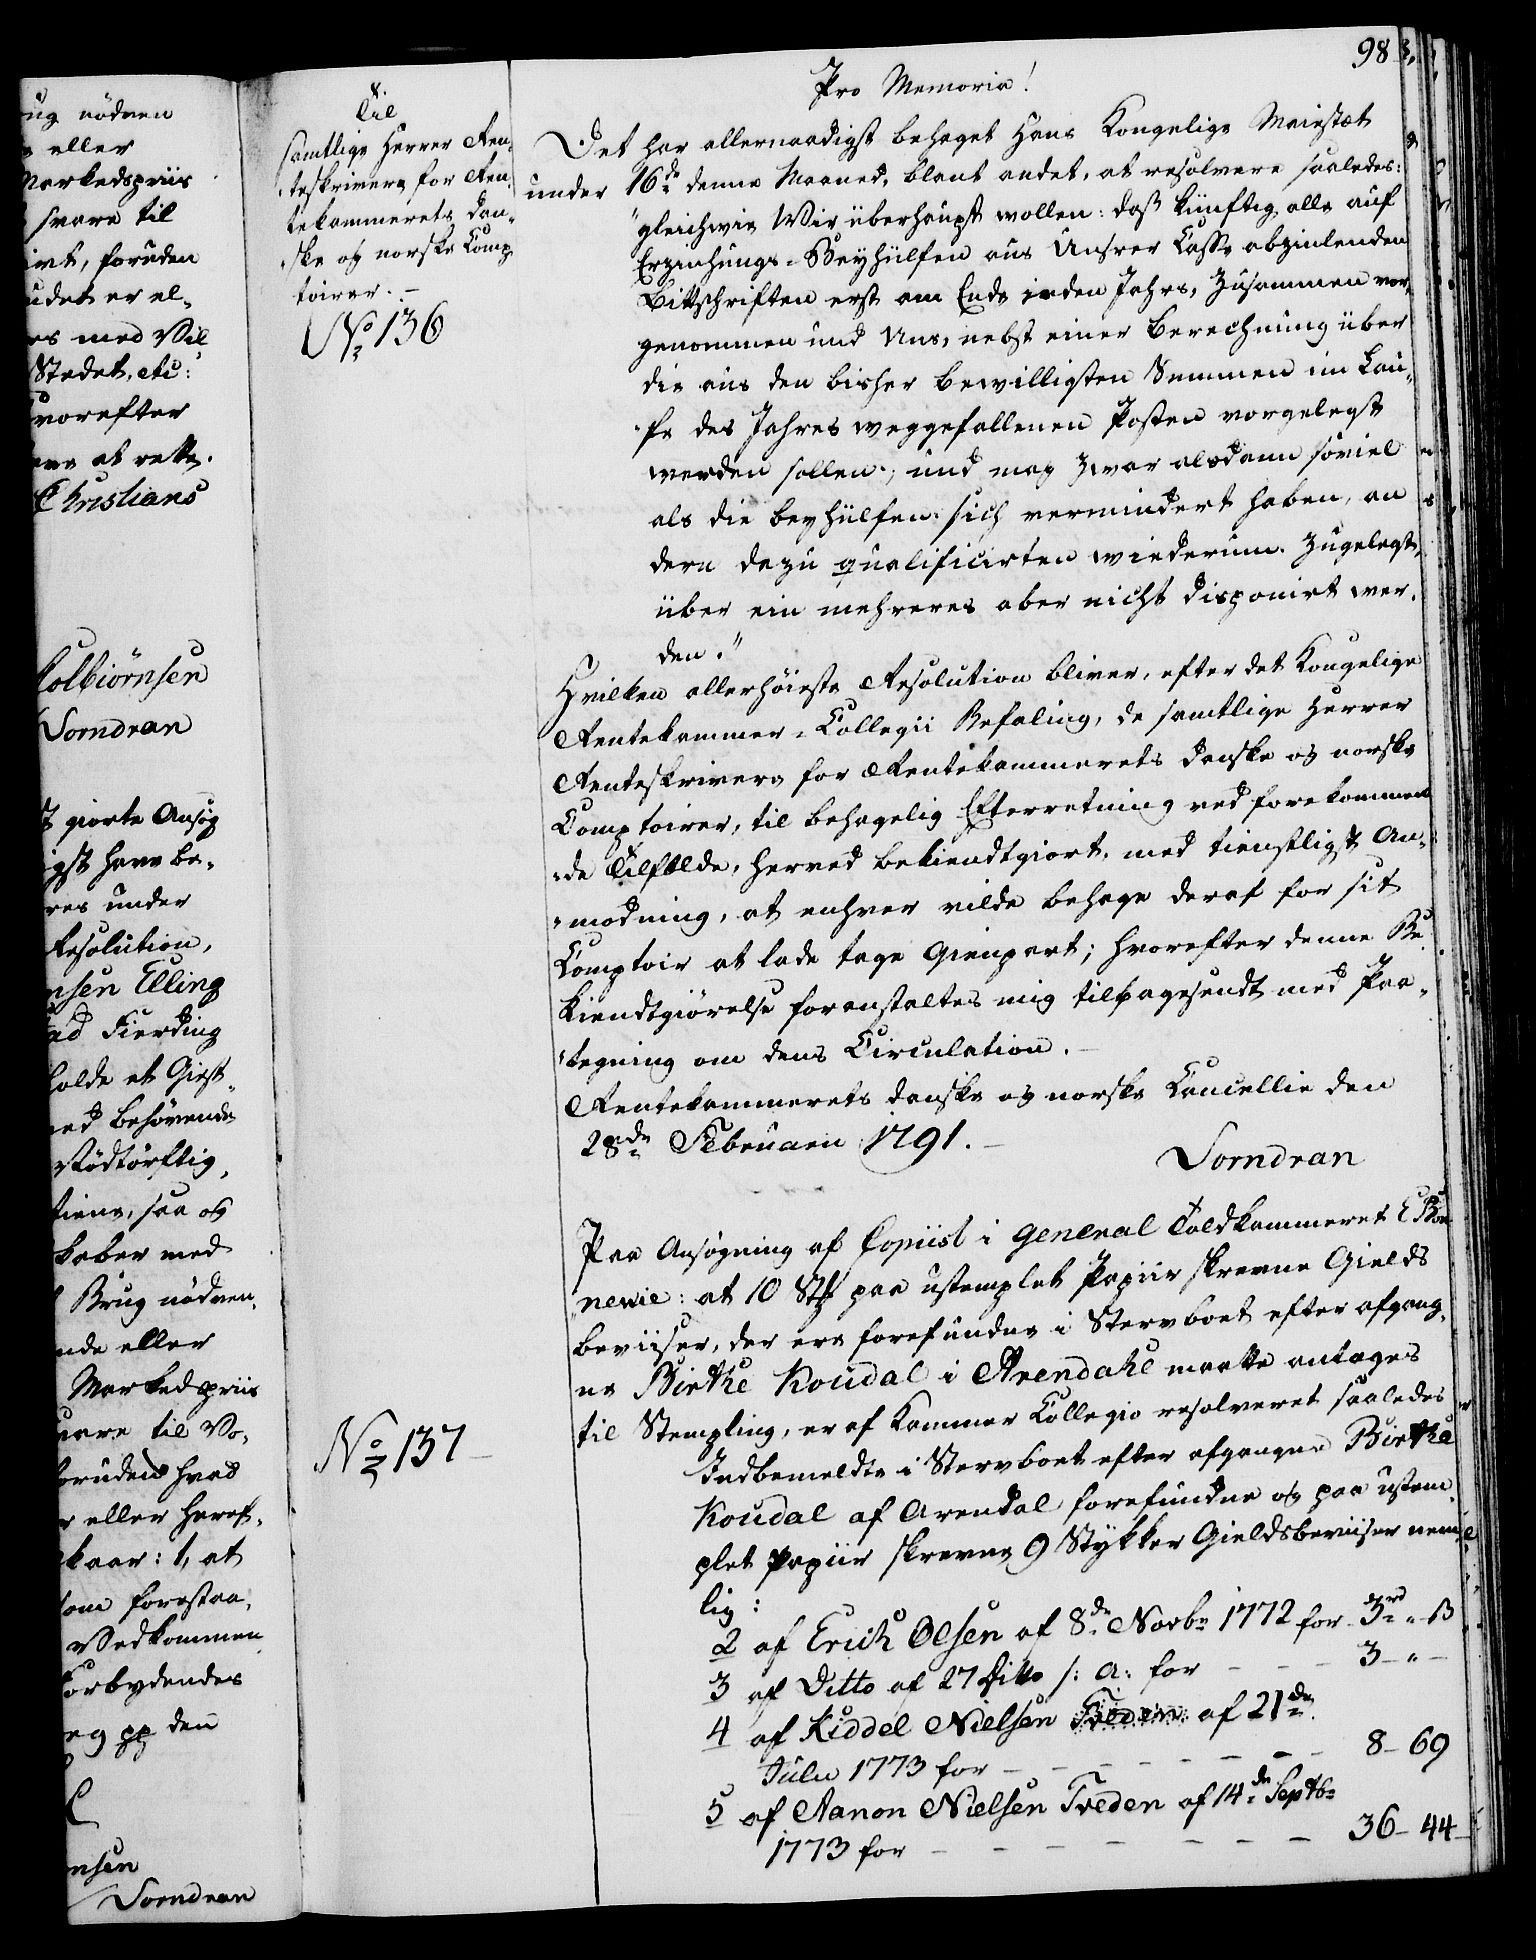 98
Pro Memoria!
Til
samtlige Herrer Ren-
teskrivere for Ren-
tekammerets dan-
ske og norske Comp-
toirer.
No 136
Det har allernaadigst behaget Hans Kongelige Maiestæt
under 16de denne Maaned, blant andet, at resolvere saaledes:
"gleichwie Wir überhaupt wollen: daß künftig alle auf
Erziehungs-Beyhülfen aus Unsrer Casse abzielenden
Bittschriften erst am Ende ieden Jahrs, zusammen vor-
genommen und Uns, nebst einer Berechnung über
die aus den bisher bewilligten Summen im Lau-
fe des Jahres weggefallenen Posten vorgelegt
werden sollen; und mag zwar alsdann soviel
als die Beyhülfen sich vermindert haben, an
dern dazu qualificirten wiederum zugelegt,
über ein mehreres aber nicht disponirt wer-
den."
Hvilken allerhöieste Resolution bliver, efter det Kongelige
Rentekammer-Collegii Befaling, de samtlige Herrer
Renteskrivere for Rentekammerets danske og norske
Comptoirer, til behagelig Efterretning ved forekommen
de Tilfælde, herved bekiendtgiort, med tienstligst An-
modning, at enhver vilde behage deraf for sit
Comptoir at lade tage Gienpart; hvorefter denne Be-
kiendtgiörelse foranstaltes mig tilbagesendt med Paa-
tegning om dens Circulation.
Rentekammerets danske og norske Cancellie den
28de Februarii 1791.
Lorndran
No 137
Paa Ansøgning af Copiist i General Toldkammeret E Bon
nevie: at 10 Stk paa ustemplet Papiir skrevne Gields
beviiser, der ere forefundne i Stervboet efter afgang-
ne Birthe Koudal i Arendahl maatte antages
til Stempling, er af Kammer Collegio resolveret saaledes
Indbemeldte i Stervboet efter afgangne Birthe
Koudal af Arendal forefundne og paa ustem-
plet Papiir skrevne 9 Stykker Gieldsbeviiser nem-
lig:
2 af Erich Olsen af 8de Novbr 1772 for 3rd " ß
3 af Ditto af 27 Ditto s: a: for - - - 3 - " -
4 af Kiddel Nielsen Treden af 21de
Julii 1773 for - - - - - - 8 - 69
5 af Aanon Nielsen Treden af 14de Septbr
1773 for - - - - - - - 36 - 44
ug nödven
eller
Markedspriis
svare til
irt, foruden
udet er el-
es med Vil
Stedet, etc:
hvorefter
at rette.
Christians
Colbiörnsen
Lorndran
giorte Ansøg
igst have be-
res under
Resolution,
nsen Elling
ad Fierding
holde et Giest-
ed behövende
Nödtörftig,
tiene, saa og
kaber med
Brug nödven-
nde eller
Markedspriis
vare til Vo-
foruden hvad
r eller heref-
kaar: 1, at
som forestaa-
Vedkommen
Forbydendes
den
nsen
Lorndran